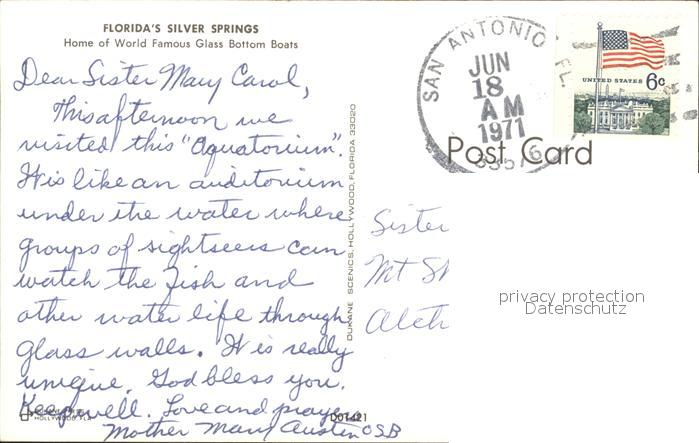 FLORIDA'S SILVER SPRINGS
Home of World Famous Glass Bottom Boats
Dear Sister Mary Carol,
This afternoon we
visited this "Aquatorium".
It is like an auditorium
under the water where
groups of sightseers can
watch the fish and
other water life through
glass walls. It is really
unique. God bless you.
Keep well. Love and prayer
Mother Mary Austin OSB
DUKANE SCENICS, HOLLYWOOD, FLORIDA 33020
HOLLYWOOD, FLA
SAN ANTONIO FL.
JUN
18
AM
1971
UNITED STATES 6c
Post Card
Sister
Mt
privacy protection
Datenschutz